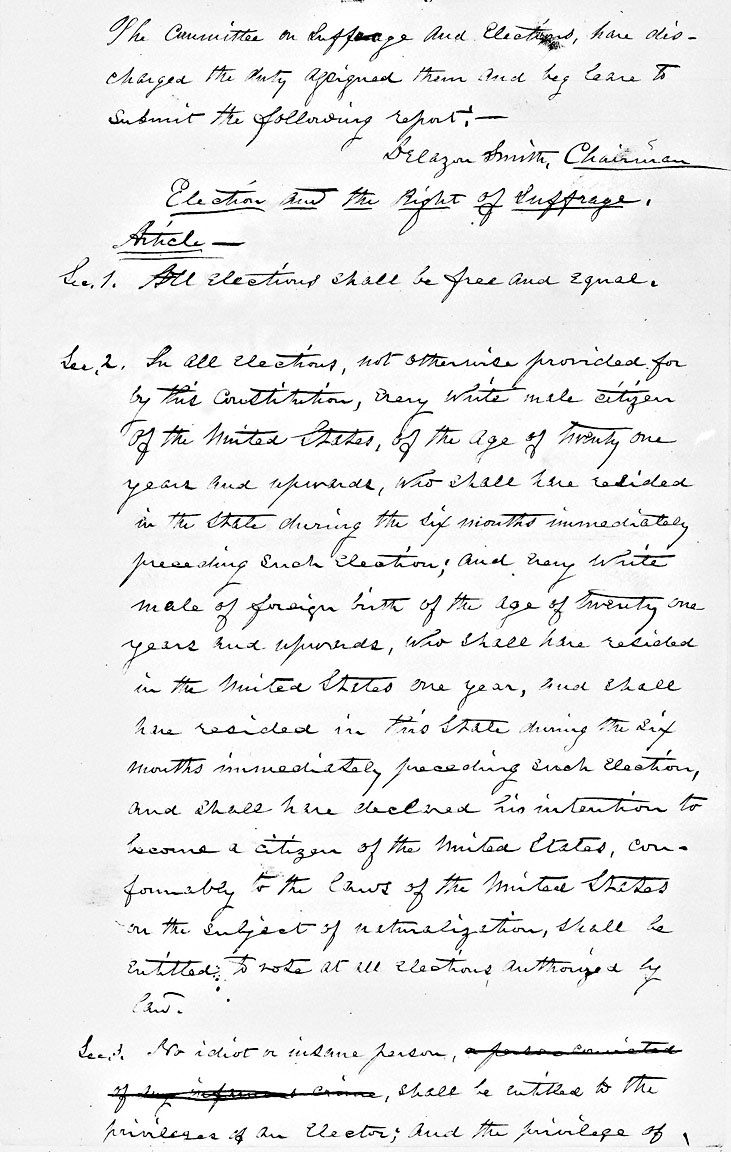 The Committee on Suffrage and Elections, have dis-
charged the duty assigned them and beg leave to
submit the following report:—
Delazon Smith, Chairman
Election and the Right of Suffrage.
Article —
Sec. 1. All elections shall be free and equal.
Sec. 2. In all elections, not otherwise provided for
by this Constitution, every white male citizen
of the United States, of the age of twenty one
years and upwards, who shall have resided
in the State during the six months immediately
preceding such election; and every white
male of foreign birth of the age of twenty one
years and upwards, who shall have resided
in the United States one year, and shall
have resided in this State during the six
months immediately preceding such election,
and shall have declared his intention to
become a citizen of the United States, con-
formably to the laws of the United States
on the subject of naturalization, shall be
entitled to vote at all elections authorized by
law.
Sec. 3. No idiot or insane person, a person convicted
of any infamous crime, shall be entitled to the
privileges of an elector; and the privilege of